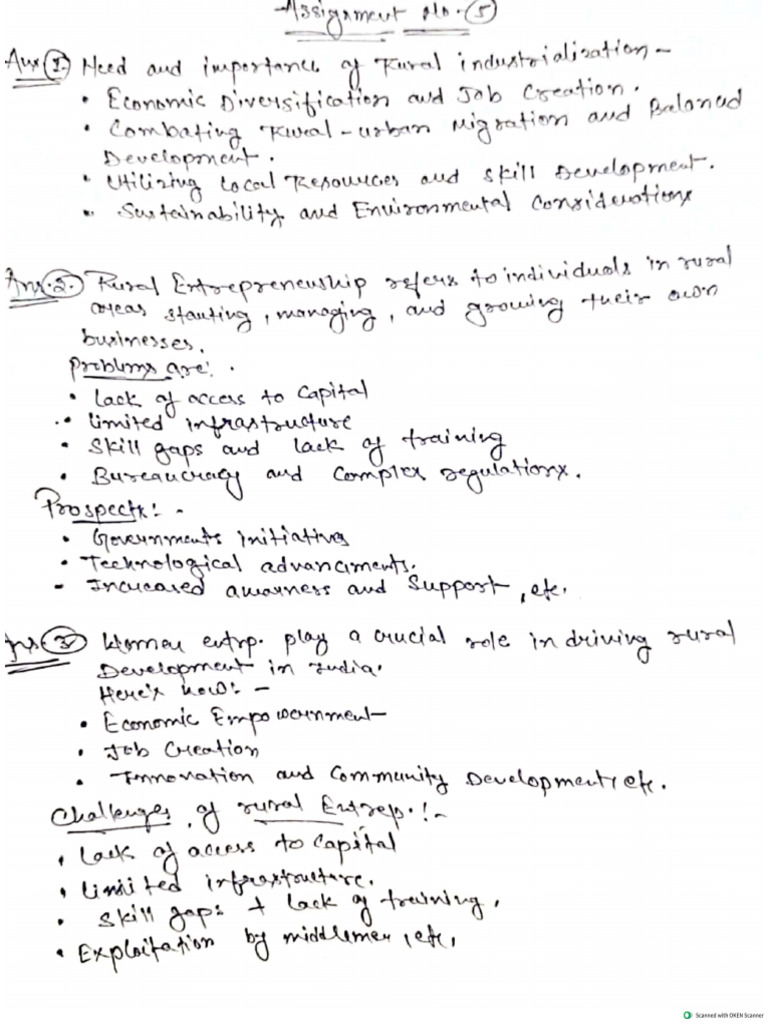 Assignment No. 5
Ans 1. Need and importance of Rural industrialisation -
• Economic Diversification and Job Creation.
• Combating Rural-urban Migration and Balanced
Development.
• Utilizing Local Resources and Skill Development.
• Sustainability and Environmental Considerations
Ans. 2. Rural Entrepreneurship refers to individuals in rural
areas starting, managing, and growing their own
businesses.
Problems are: -
• Lack of access to Capital
• Limited infrastructure
• Skill gaps and lack of training
• Bureaucracy and Complex regulations.
Prospects: -
• Governments initiatives
• Technological advancements.
- Increased awarness and Support, etc.
Ans. 3 Women entrp. play a crucial role in driving rural
Development in India.
Here's how: -
• Economic Empowernment
• Job Creation
• Innovation and Community Development, etc.
Challenges of rural Entrep. : -
• Lack of access to Capital
• Limited infrastructure.
• Skill gaps + lack of training,
• Exploitation by middlemen, etc,
Scanned with OKEN Scanner